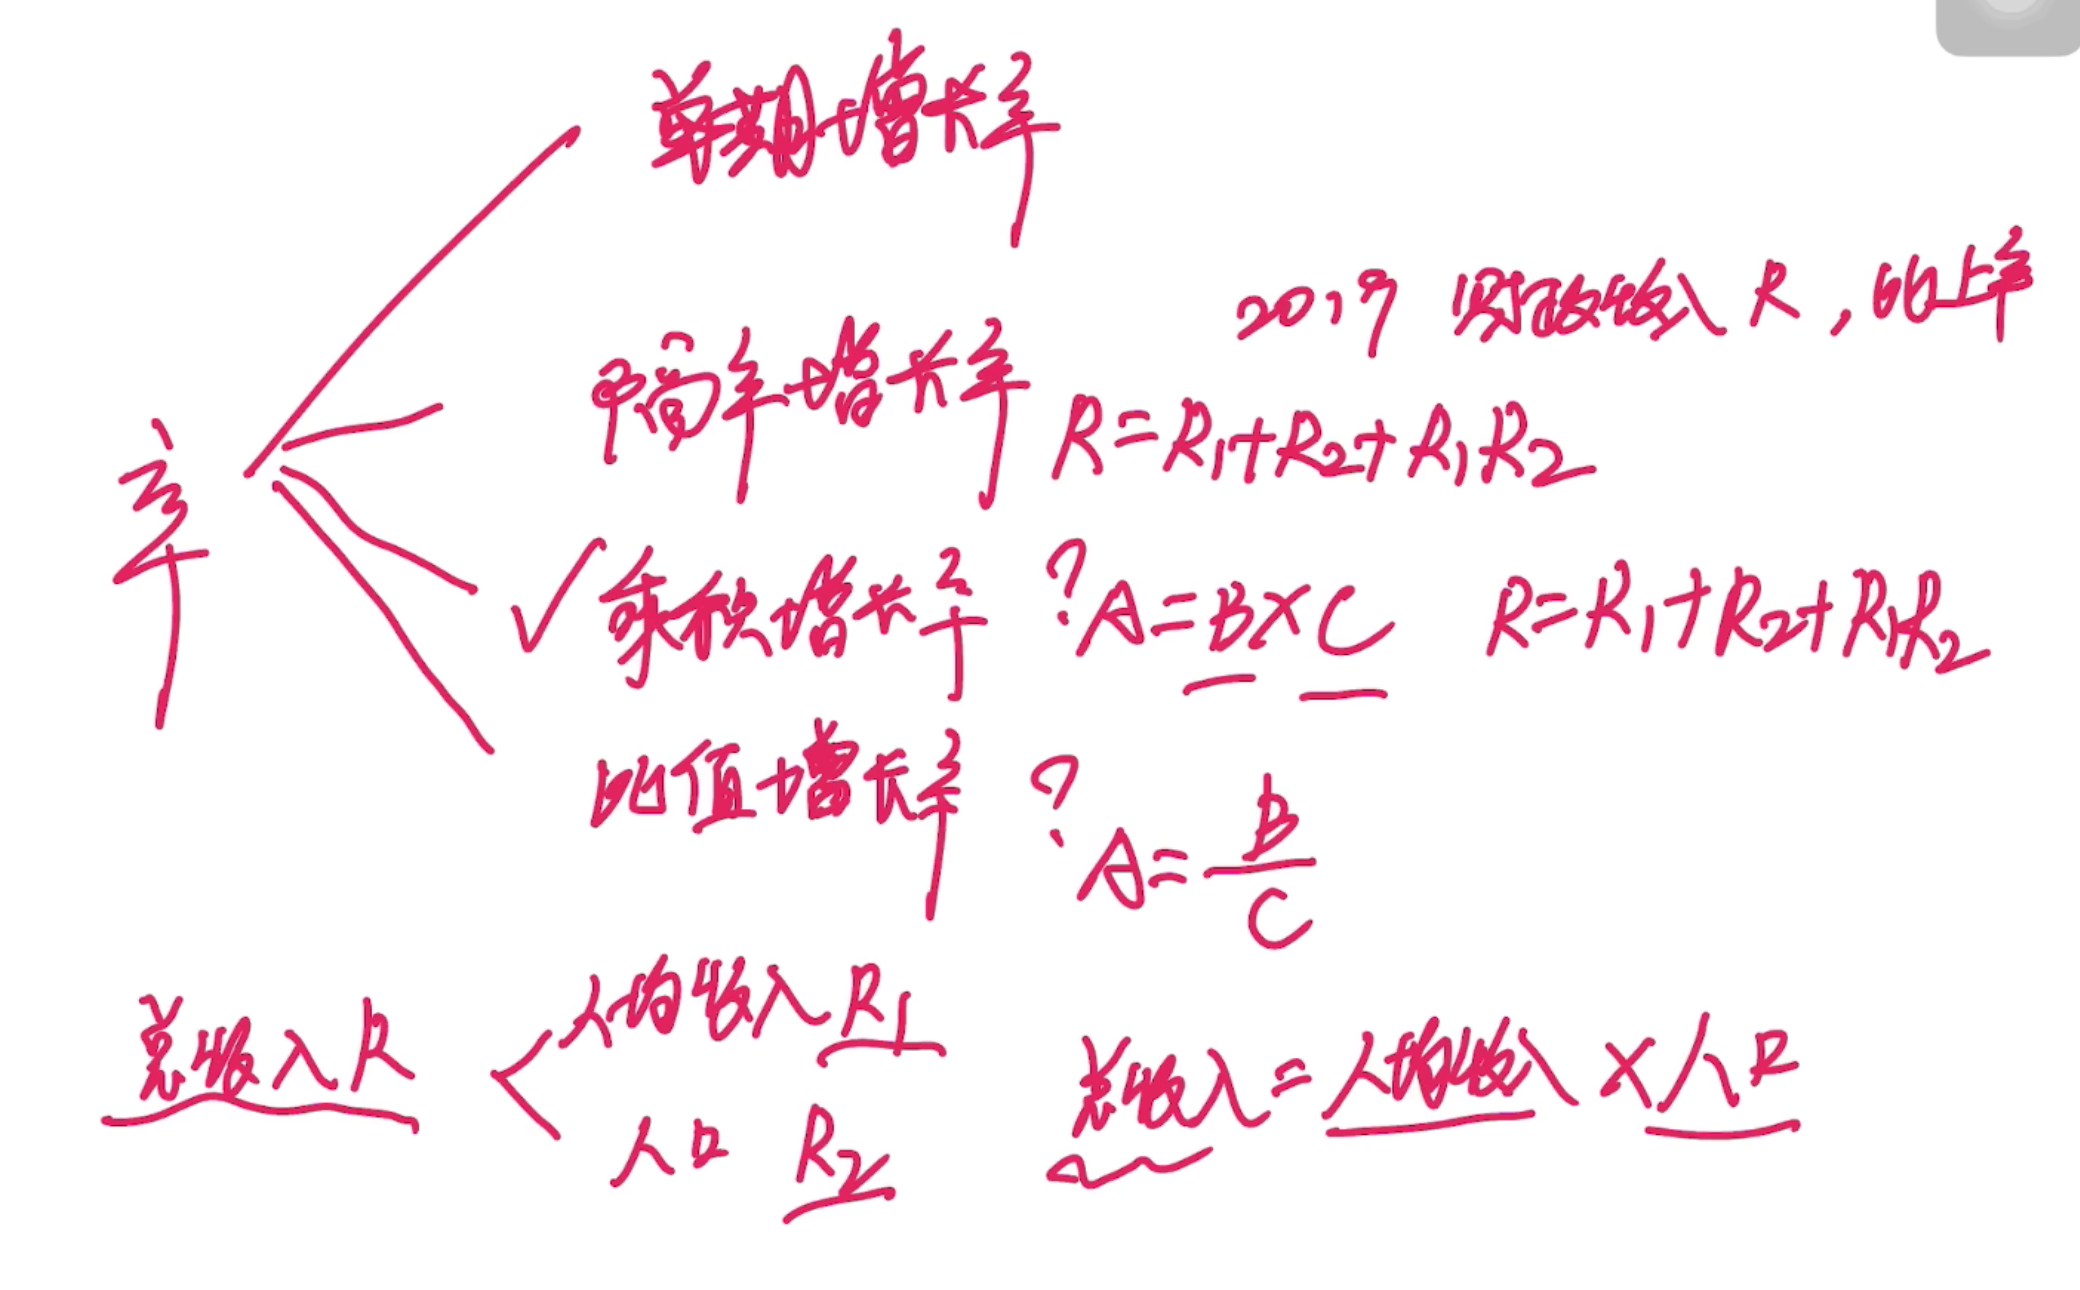 单期增长率
2019 财政收入R，比上年
隔年增长率 R=R₁+R₂+R₁R₂
率
✓乘积增长率 ? A=B×C R=R₁+R₂+R₁R₂
比值增长率 ? A=B/C
总收入R
人均收入R₁
人口 R₂
总收入=人均收入×人口